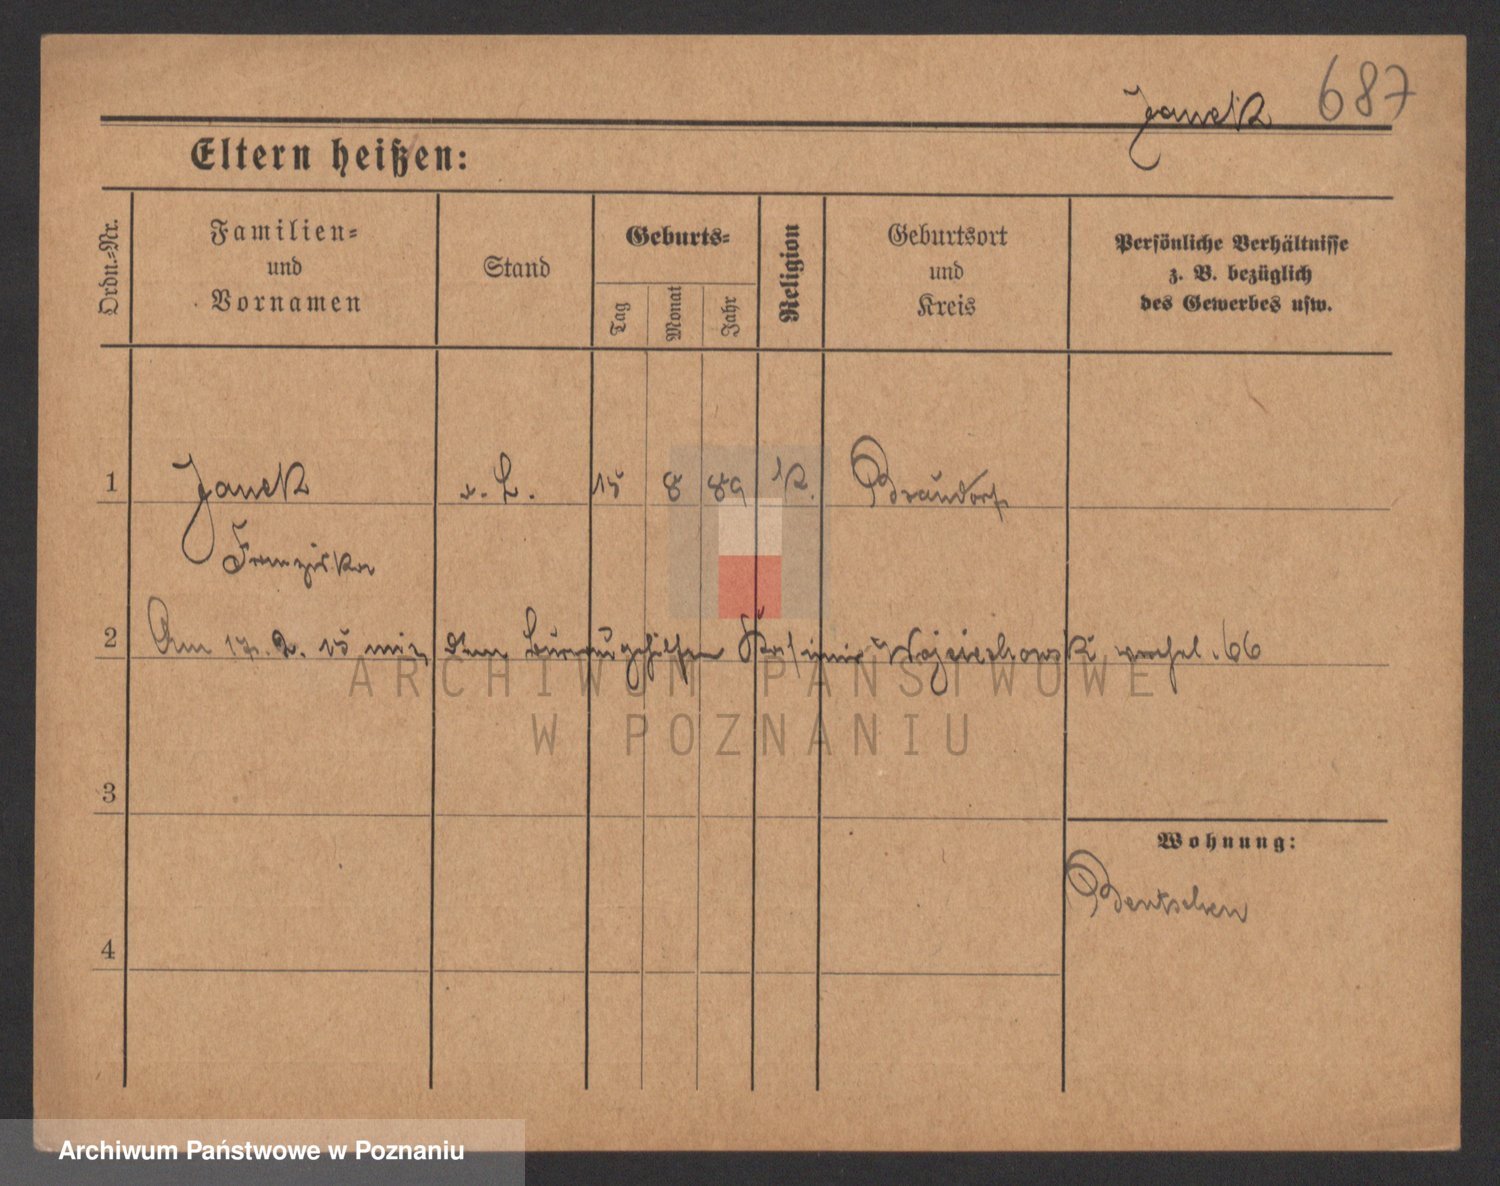 Janek 687
Eltern heißen:
Ordn.-Nr.
Familien-
und
Vornamen
Stand
Geburts-
Tag
Monat
Jahr
Religion
Geburtsort
und
Kreis
Persönliche Verhältnisse
z. B. bezüglich
des Gewerbes usw.
1 Janek v. L. 15 8 89 K. Braudorf
Franziska
2 Am 17. 2. 15 mit dem Bureaugehilfen Kasimir Wojciechowski verehel. 66
ARCHIWUM PAŃSTWOWE
W POZNANIU
3
Wohnung:
Bentschen
4
Archiwum Państwowe w Poznaniu